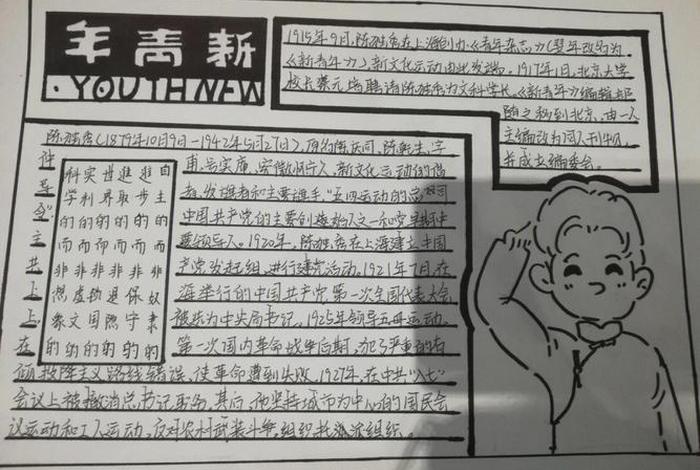 年青新
.YOUTH NEW
1915年9月,陈独秀在上海创办《青年杂志》(翌年改名为
《新青年》),新文化运动由此发端。1917年1月,北京大学
校长蔡元培聘请陈独秀为文科学长,《新青年》编辑部
随之移到北京,由一人
主编改为同人刊物,
并成立编委会。
陈独秀(1879年10月9日-1942年5月27日),原名陈庆同,陈乾生,字
仲甫,号实庵,安徽怀宁人,新文化运动的倡
导者、发起者和主要旗手,"五四运动的总司
令",中国共产党的主要创始人之一和党早期主
要领导人。1920年,陈独秀在上海建立中国
共产党发起组,进行建党活动。1921年7月在
上海举行的中国共产党第一次全国代表大会
上,被选为中央局书记。1925年领导五卅运动。
在第一次国内革命战争后期,犯了严重的右
倾投降主义路线错误,使革命遭到失败。1927年,在中共"八七"
会议上被撤消总书记职务,其后,他坚持城市为中心的国民会
议运动和工人运动,反对农村武装斗争,组织托派组织。
自主的而非奴隶的
进步的而非保守的
进取的而非退隐的
世界的而非
实利的而非虚文的
科学的而非想象的